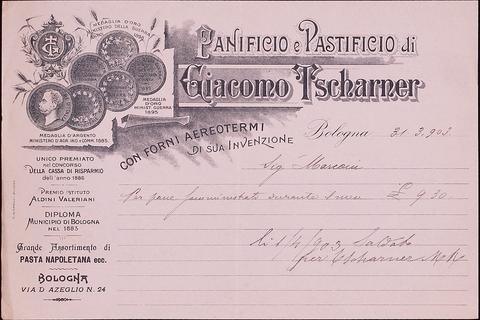 PANIFICIO e PASTIFICIO di
Giacomo Tscharner
CON FORNI AEREOTERMI
DI SUA INVENZIONE
MEDAGLIA D'ORO
MINISTERO DELLA GUERRA
MEDAGLIA
D'ORO
MINIST. GUERRA
1895
MEDAGLIA D'ARGENTO
MINISTERO D'AGR. IND. e COMM. 1885
UNICO PREMIATO
nel CONCORSO
DELLA CASSA DI RISPARMIO
dell'anno 1886
PREMIO ISTITUTO
ALDINI VALERIANI
DIPLOMA
MUNICIPIO DI BOLOGNA
NEL 1883
Grande Assortimento di
PASTA NAPOLETANA ecc.
BOLOGNA
VIA D. AZEGLIO N. 24
Bologna 31. 3. 903.
Sig. Marcovi
Per pane somministrato durante il mese £ 9.30
li 1/4/903 Saldato
per Tscharner